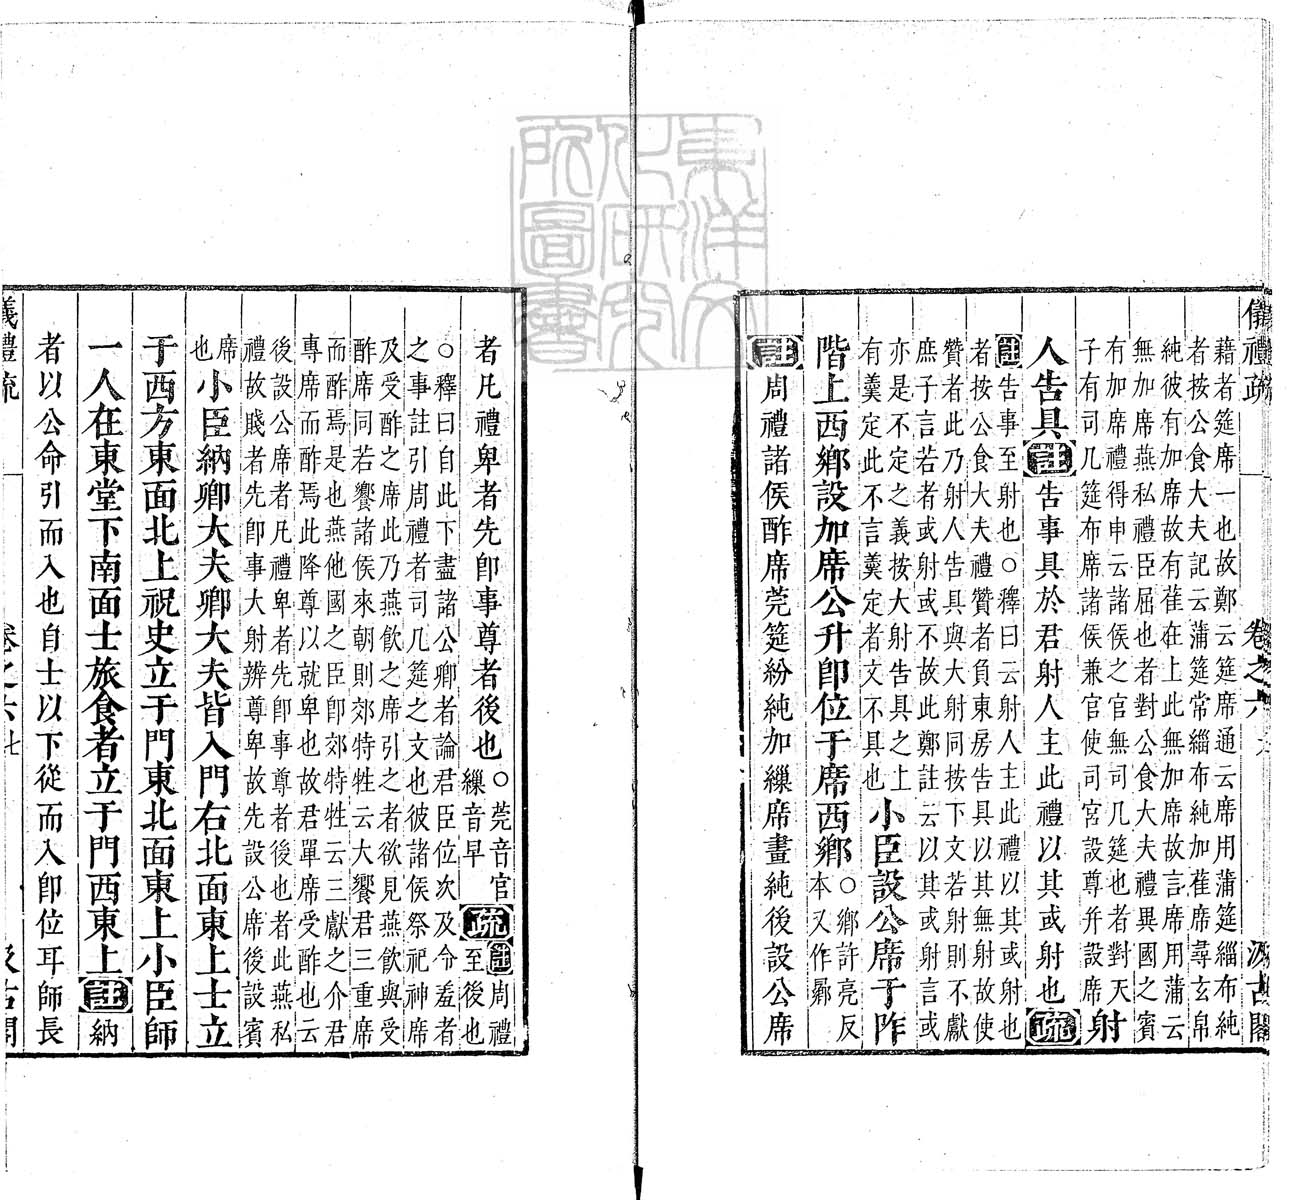 儀禮疏
卷之六
六
汲古閣
藉者筵席一也故鄭云筵席通云席用蒲筵緇布純
者按公食大夫記云蒲筵常緇布純加萑席尋玄帛
純彼有加席故有萑在上此無加席故言席用蒲云
無加席燕私禮臣屈也者對公食大夫禮異國之賓
有加席禮得申云諸侯之官無司几筵也者對天
子有司几筵布席諸侯兼官使司宮設尊并設席射
人告具註告事具於君射人主此禮以其或射也疏
註告事至射也○釋曰云射人主此禮以其或射也
者按公食大夫禮贊者負東房告具以其無射故使
贊者此乃射人告具與大射同按下文若射則不獻
庶子言若者或射或不故此鄭註云以其或射言或
亦是不定之義按大射告具之上
有羹定此不言羹定者文不具也小臣設公席于阼
階上西鄉設加席公升卽位于席西鄉○鄉許亮反
本又作曏
註周禮諸侯酢席莞筵紛純加繅席畫純後設公席
者凡禮卑者先卽事尊者後也○莞音官
繅音早疏註周禮
至後也
○釋曰自此下盡諸公卿者論君臣位次及令羞者
之事註引周禮者司几筵之文也彼諸侯祭祀神席
及受酢之席此乃燕飲之席引之者欲見燕飲與受
酢席同若饗諸侯來朝則郊特牲云大饗君三重席
而酢焉是也燕他國之臣卽郊特牲云三獻之介君
專席而酢焉此降尊以就卑也故君單席受酢也云
後設公席者凡禮卑者先卽事尊者後也者此燕私
禮故賤者先卽事大射辨尊卑故先設公席後設賓
席
也小臣納卿大夫卿大夫皆入門右北面東上士立
于西方東面北上祝史立于門東北面東上小臣師
一人在東堂下南面士旅食者立于門西東上註納
者以公命引而入也自士以下從而入卽位耳師長
儀禮疏
卷之六
七
汲古閣
東洋文化研究所圖書